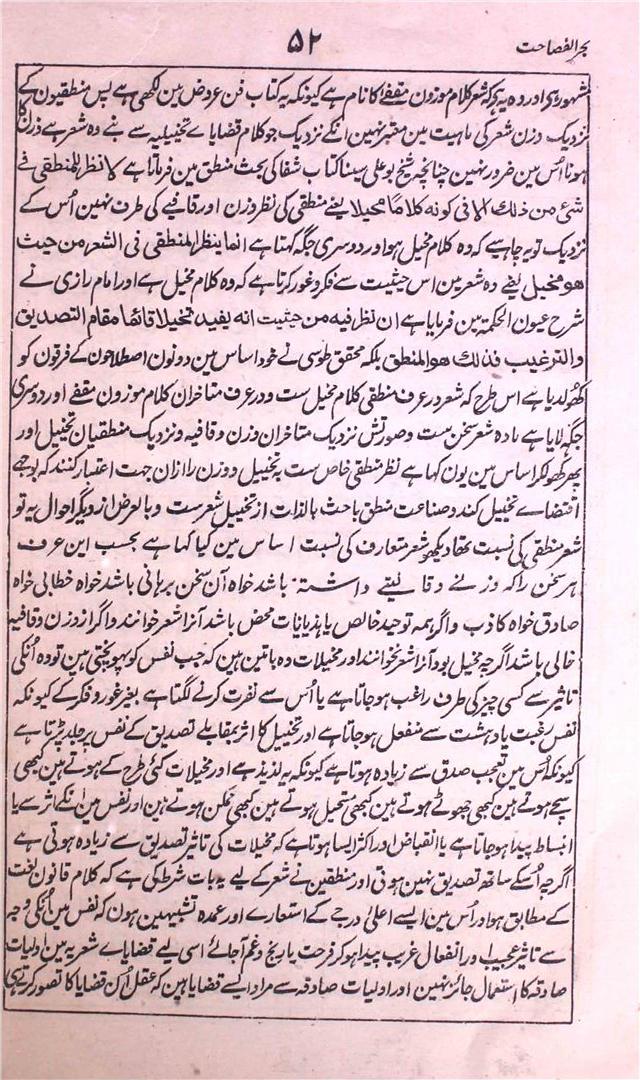 بحر الفصاحت
۵۲
مشہور ہی اور وہ یہ ہے کہ شعر کلام موزون مقفے کا نام ہے کیونکہ یہ کتاب فن عروض مین لکھی ہے پس منطقیون کے
نزدیک وزن شعر کی ماہیت مین معتبر نہین انکے نزدیک جو کلام قضایاے تخییلیہ سے بنے وہ شعر ہے وزن کا
ہونا اُس مین ضرور نہین چنانچہ شیخ بو علی سینا کتاب شفا کی بحث منطق مین فرماتا ہے لا نظر للمنطقی فے
شئ من ذلك الا فی کونه کلاما مخیلا یعنے منطقی کی نظر وزن اور قافیے کی طرف نہین اُس کے
نزدیک تو یہ چاہیے کہ وہ کلام مخیل ہو اور دوسری جگہ کہتا ہے انما ینظر المنطقی فی الشعر من حیث
هو مخیل یعنے وہ شعر مین اس حیثیت سے فکر و غور کرتا ہے کہ وہ کلام مخیل ہے اور امام رازی نے
شرح عیون الحکمۃ مین فرمایا ہے ان نظر فیه من حیثیت انه یفید تخیلا قائما مقام التصدیق
والترغیب فذلك هو المنطق بلکہ محقق طوسی نے خود اساس مین دونون اصطلاحون کے فرقون کو
کھولدیا ہے اس طرح کہ شعر در عرف منطقی کلام مخیل ست و در عرف متاخران کلام موزون مقفے اور دوسری
جگہ لایا ہے مادہ شعر سخن ست و صورتش نزدیک متاخران وزن و قافیہ و نزدیک منطقیان تخییل اور
پھر کھولکر اساس مین یون کہا ہے نظر منطقی خاص ست بہ تخییل و وزن را ازان جہت اعتبار کنند کہ بوجہے
اقتضاے تخییل کند و صناعت منطق باحث بالذات از تخییل شعر ست و بالعرض از دیگر احوال یہ تو
شعر منطقی کی نسبت تھا دیکھو شعر متعارف کی نسبت اساس مین کیا کہا ہے بحسب این عرف
ہر سخن را کہ وزنے و قافیتے داشتہ باشد خواہ آن سخن برہانی باشد خواہ خطابی خواہ
صادق خواہ کاذب و اگر ہمہ توحید خالص یا ہذیانات محض باشد آنرا شعر خوانند و اگر از وزن و قافیہ
خالی باشد اگرچہ مخیل بود آنرا شعر نخوانند اور مخیلات وہ باتین ہین کہ جب نفس کو پہونچتی ہین تو وہ اُنکی
تاثیر سے کسی چیز کی طرف راغب ہو جاتا ہے یا اُس سے نفرت کرنے لگتا ہے بغیر غور و فکر کے کیونکہ
نفس رغبت یا دہشت سے منفعل ہو جاتا ہے اور تخییل کا اثر بمقابلے تصدیق کے نفس پر جلد پڑتا ہے
کیونکہ اُس مین تعجب صدق سے زیادہ ہوتا ہے کیونکہ یہ لذیذ ہے اور مخیلات کئی طرح کے ہوتے ہین کبھی
سچے ہوتے ہین کبھی جھوٹے ہوتے ہین کبھی مستحیل ہوتے ہین کبھی ممکن ہوتے ہین اور نفس مین انکے اثر سے یا
انبساط پیدا ہو جاتا ہے یا انقباض اور اکثر ایسا ہوتا ہے کہ مخیلات کی تاثیر تصدیق سے زیادہ ہوتی ہے
اگرچہ اُسکے ساتھ تصدیق نہین ہوتی اور منطقین نے شعر کے لیے یہ بات شرط کی ہے کہ کلام قانون لغت
کے مطابق ہو اور اُس مین ایسے اعلیٰ درجے کے استعارے اور عمدہ تشبیہین ہون کہ نفس مین اُنکی وجہ
سے تاثیر عجیب اور انفعال غریب پیدا ہو کر فرحت یا رنج و غم آ جائے اسی لیے قضایاے شعریہ مین اولیات
صادقہ کا استعمال جائز نہین اور اولیات صادقہ سے مراد ایسے قضایا ہین کہ عقل اُن قضایا کا تصور کرتے ہی